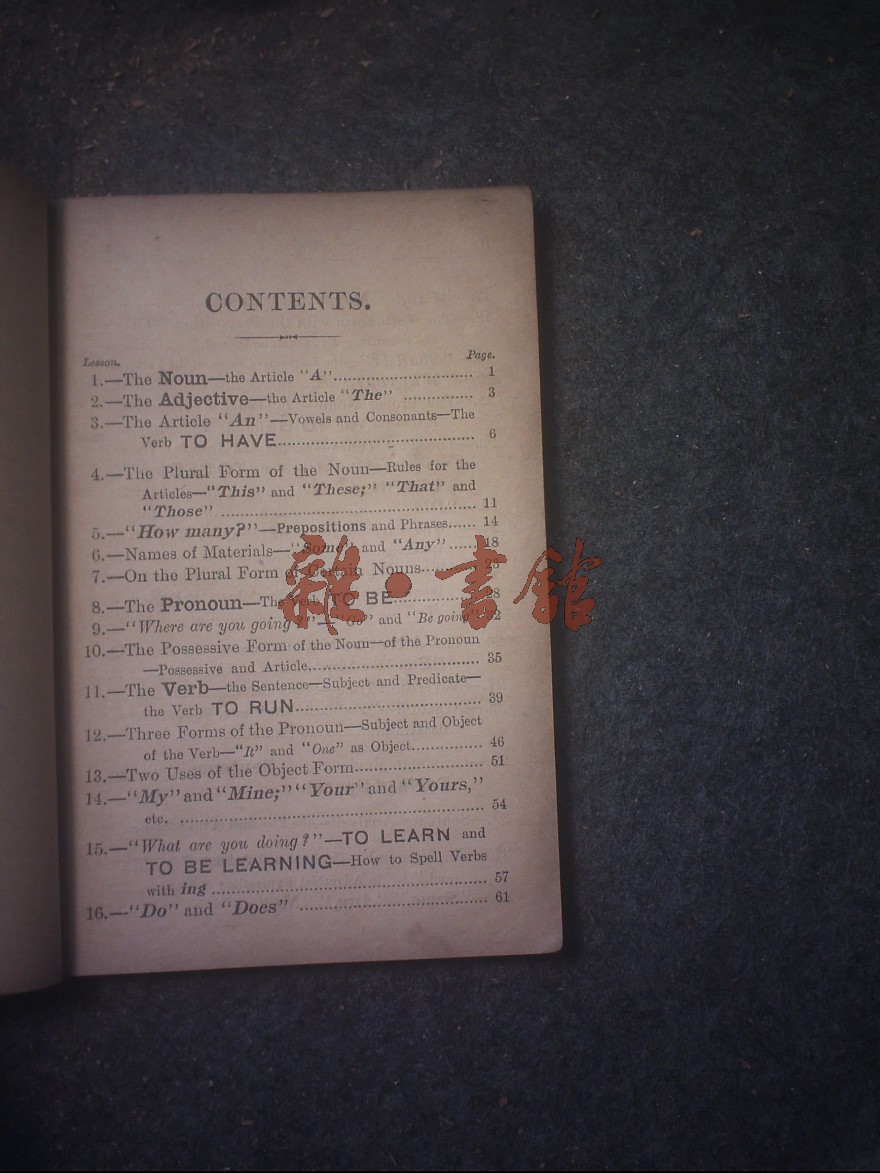 CONTENTS.
Lesson. Page.
1.—The Noun—the Article "A".............................. 1
2.—The Adjective—the Article "The" ............... 3
3.—The Article "An"—Vowels and Consonants—The
Verb TO HAVE.......................................... 6
4.—The Plural Form of the Noun—Rules for the
Articles—"This" and "These;" "That" and
"Those" ...................................................... 11
5.—"How many?"—Prepositions and Phrases...... 14
6.—Names of Materials—"Some" and "Any" ...... 18
7.—On the Plural Form of Certain Nouns........... 23
8.—The Pronoun—The Verb TO BE.................. 28
9.—"Where are you going?"—"Go" and "Be going" 32
雜·書館
10.—The Possessive Form of the Noun—of the Pronoun
—Possessive and Article.................................... 35
11.—The Verb—the Sentence—Subject and Predicate—
the Verb TO RUN........................................ 39
12.—Three Forms of the Pronoun—Subject and Object
of the Verb—"It" and "One" as Object............... 46
13.—Two Uses of the Object Form........................... 51
14.—"My" and "Mine;" "Your" and "Yours,"
etc. ................................................................ 54
15.—"What are you doing?"—TO LEARN and
TO BE LEARNING—How to Spell Verbs
with ing .......................................................... 57
16.—"Do" and "Does" ........................................ 61